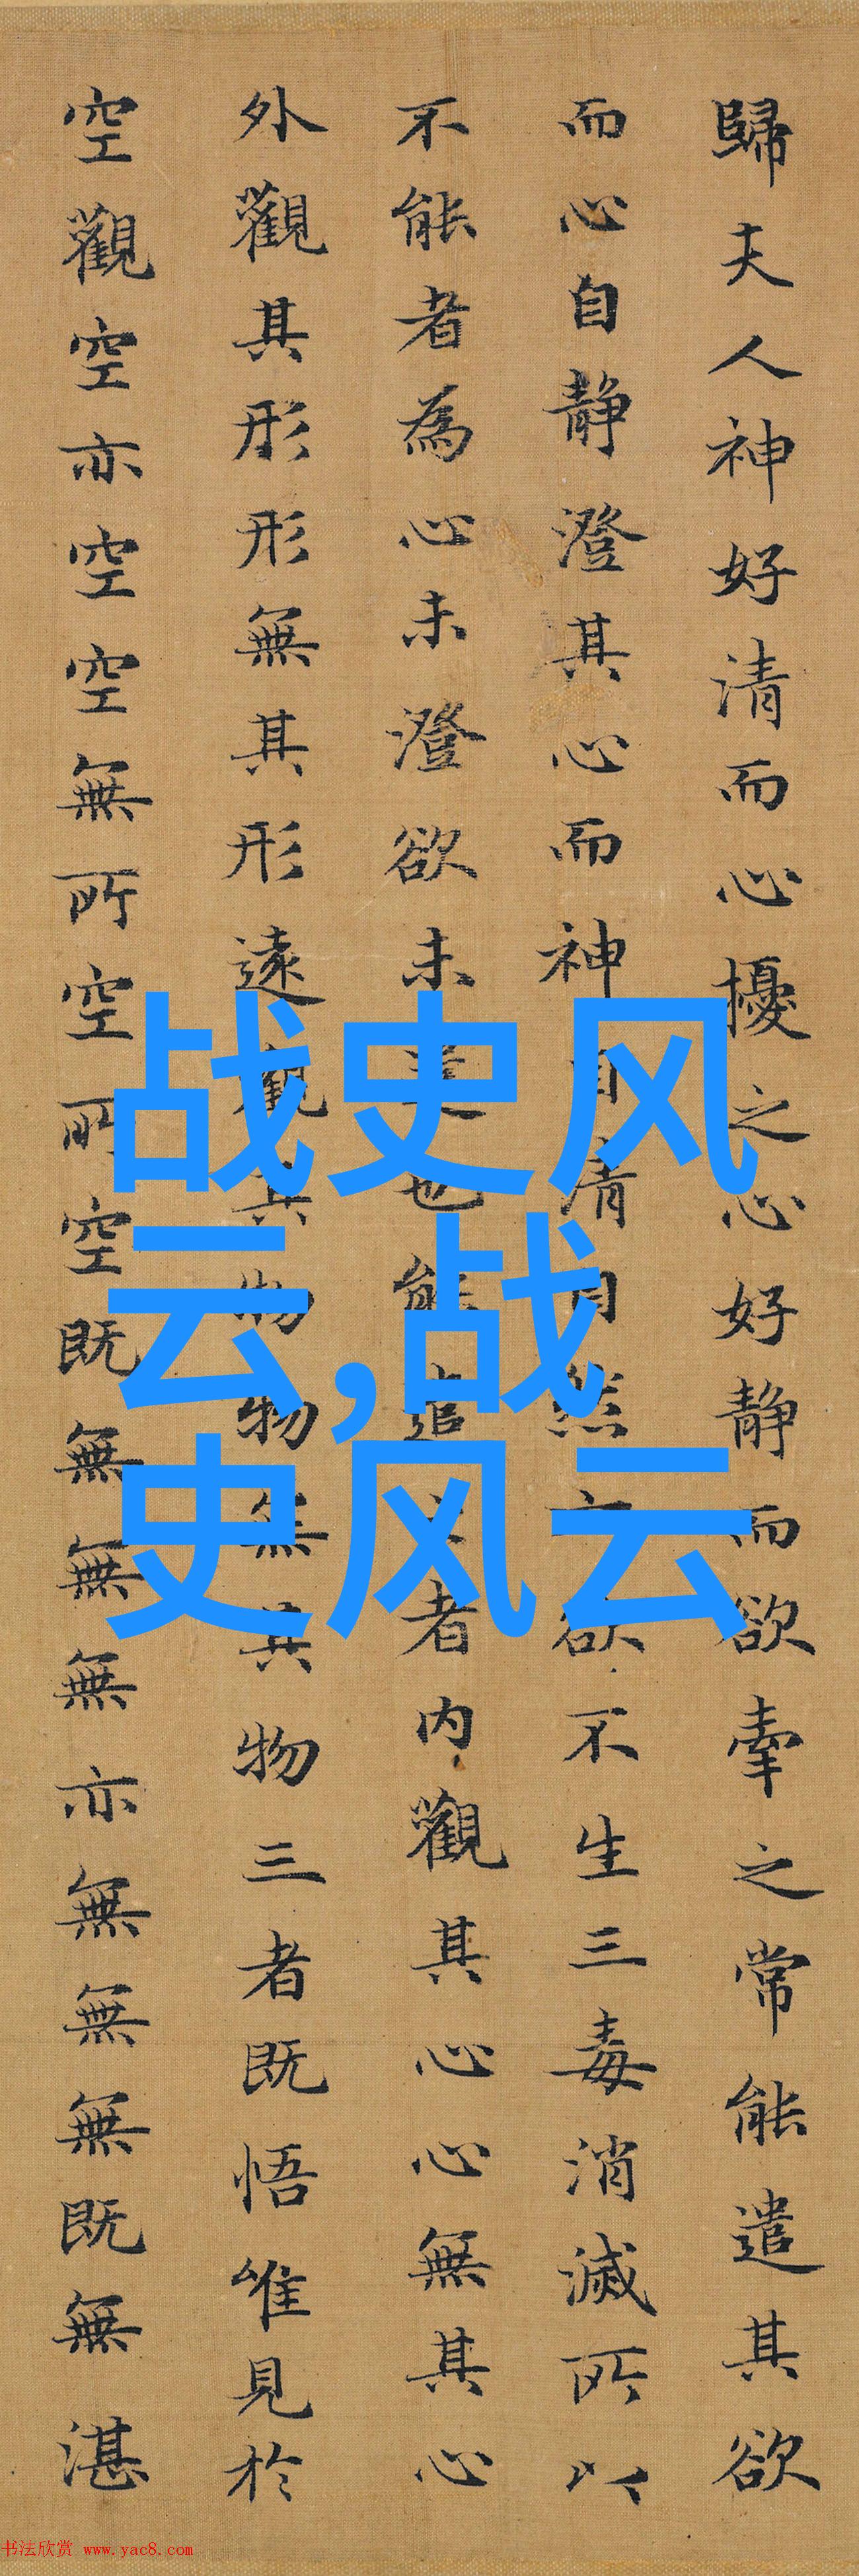 歸夫人神好清而心擾之心好静而欲牽之常能遣其欲
而心自静澄其心而神自清自然六欲不生三毒消滅所以
不能者為心未澄欲未遣也能遣之者内觀其心心無其心
外觀其形形無其形遠觀其物物無其物三者既悟唯見於
空觀空亦空空無所空所空既無無無亦無無無既無湛
战史风
云,战
史风云
书法欣赏 www.yac8.com